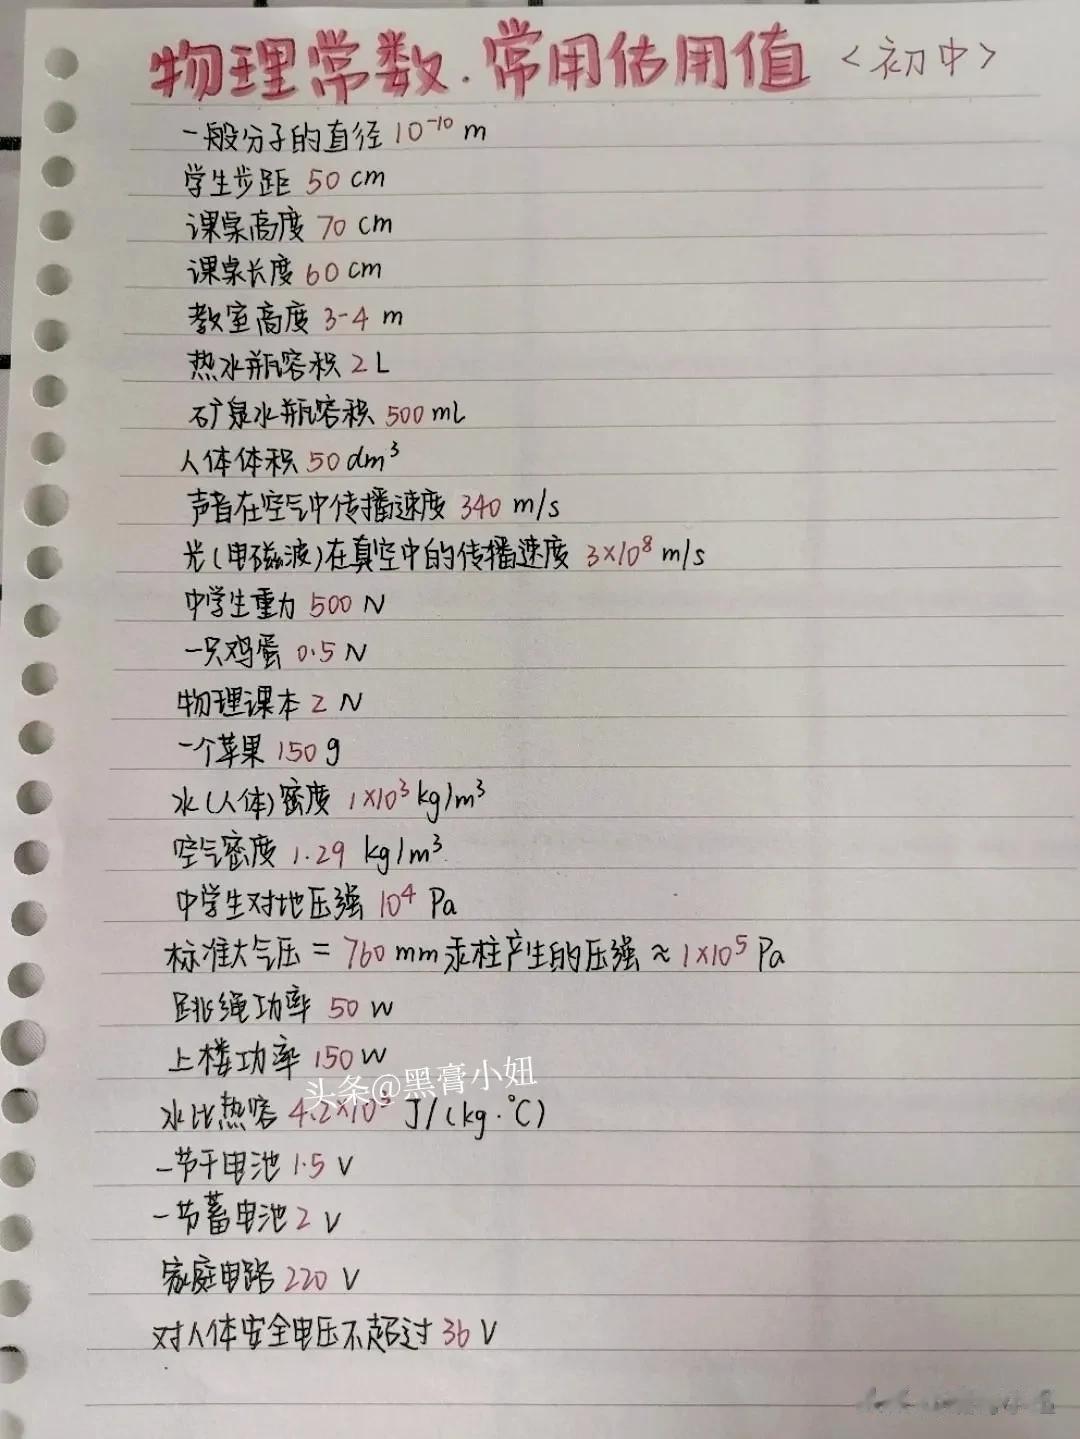 物理常数.常用估用值 <初中>
一般分子的直径 10⁻¹⁰ m
学生步距 50 cm
课桌高度 70 cm
课桌长度 60 cm
教室高度 3-4 m
热水瓶容积 2 L
矿泉水瓶容积 500 mL
人体体积 50 dm³
声音在空气中传播速度 340 m/s
光(电磁波)在真空中的传播速度 3×10⁸ m/s
中学生重力 500 N
一只鸡蛋 0.5 N
物理课本 2 N
一个苹果 150 g
水(人体)密度 1×10³ kg/m³
空气密度 1.29 kg/m³
中学生对地压强 10⁴ Pa
标准大气压 = 760 mm 汞柱产生的压强 ≈ 1×10⁵ Pa
跳绳功率 50 W
上楼功率 150 W
头条@黑膏小妞
水比热容 4.2×10³ J/(kg·℃)
一节干电池 1.5 V
一节蓄电池 2 V
家庭电路 220 V
对人体安全电压不超过 36 V